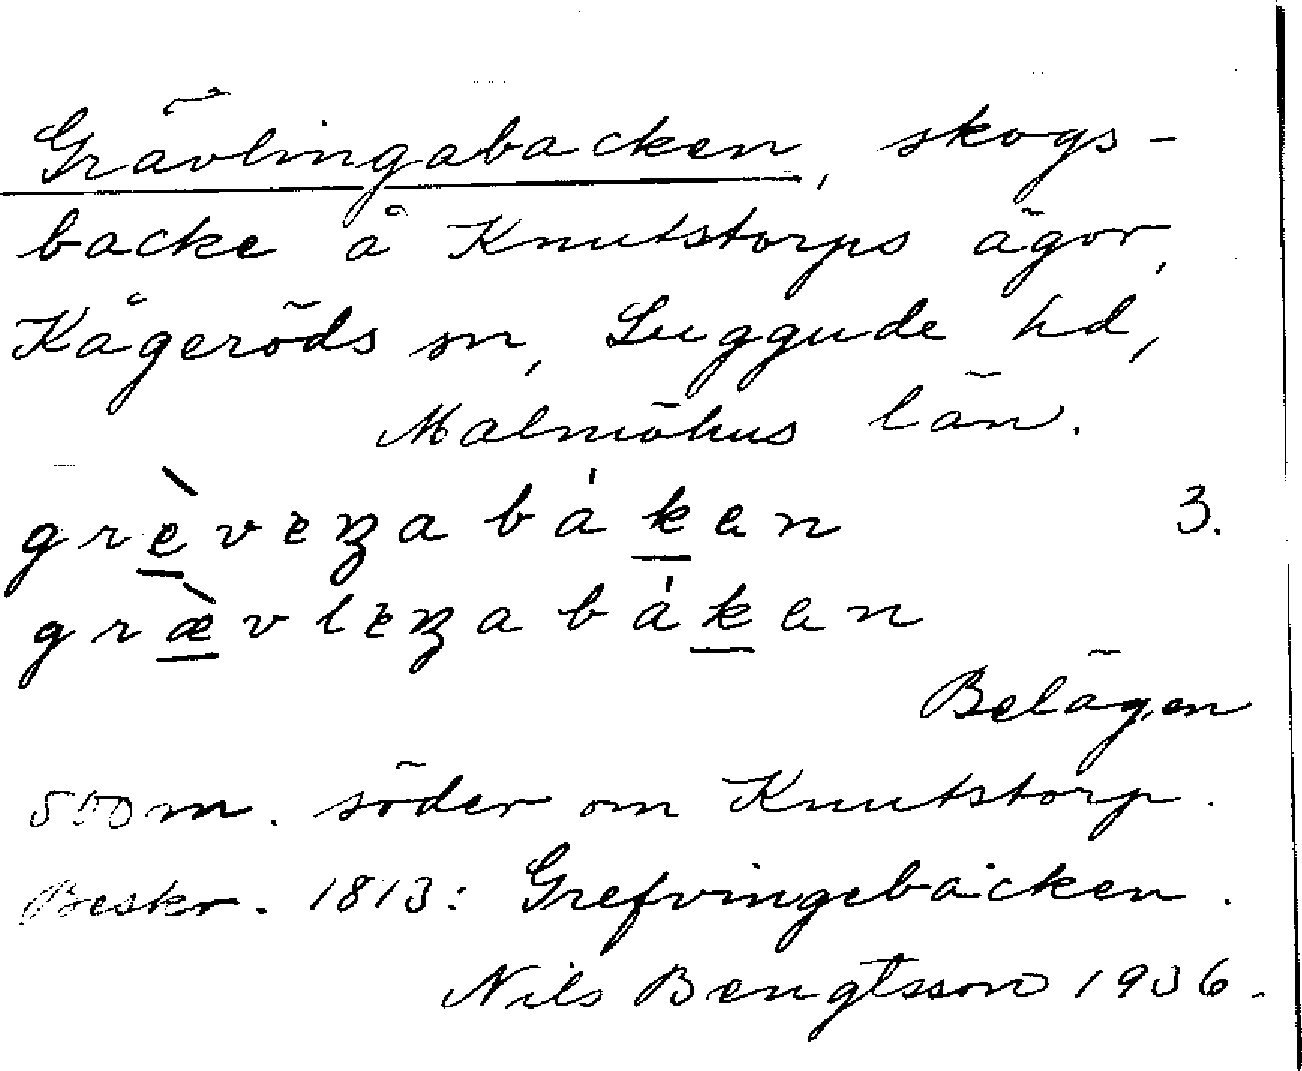 Grävlingabacken, skogs-
backe å Knutstorps ägor,
Kågeröds sn, Luggude hd,
Malmöhus län.
grèveŋabákan 3.
grævleŋabákan
Belägen
500 m. söder om Knutstorp.
Beskr. 1813: Grefvingebacken.
Nils Bengtsson 1936.